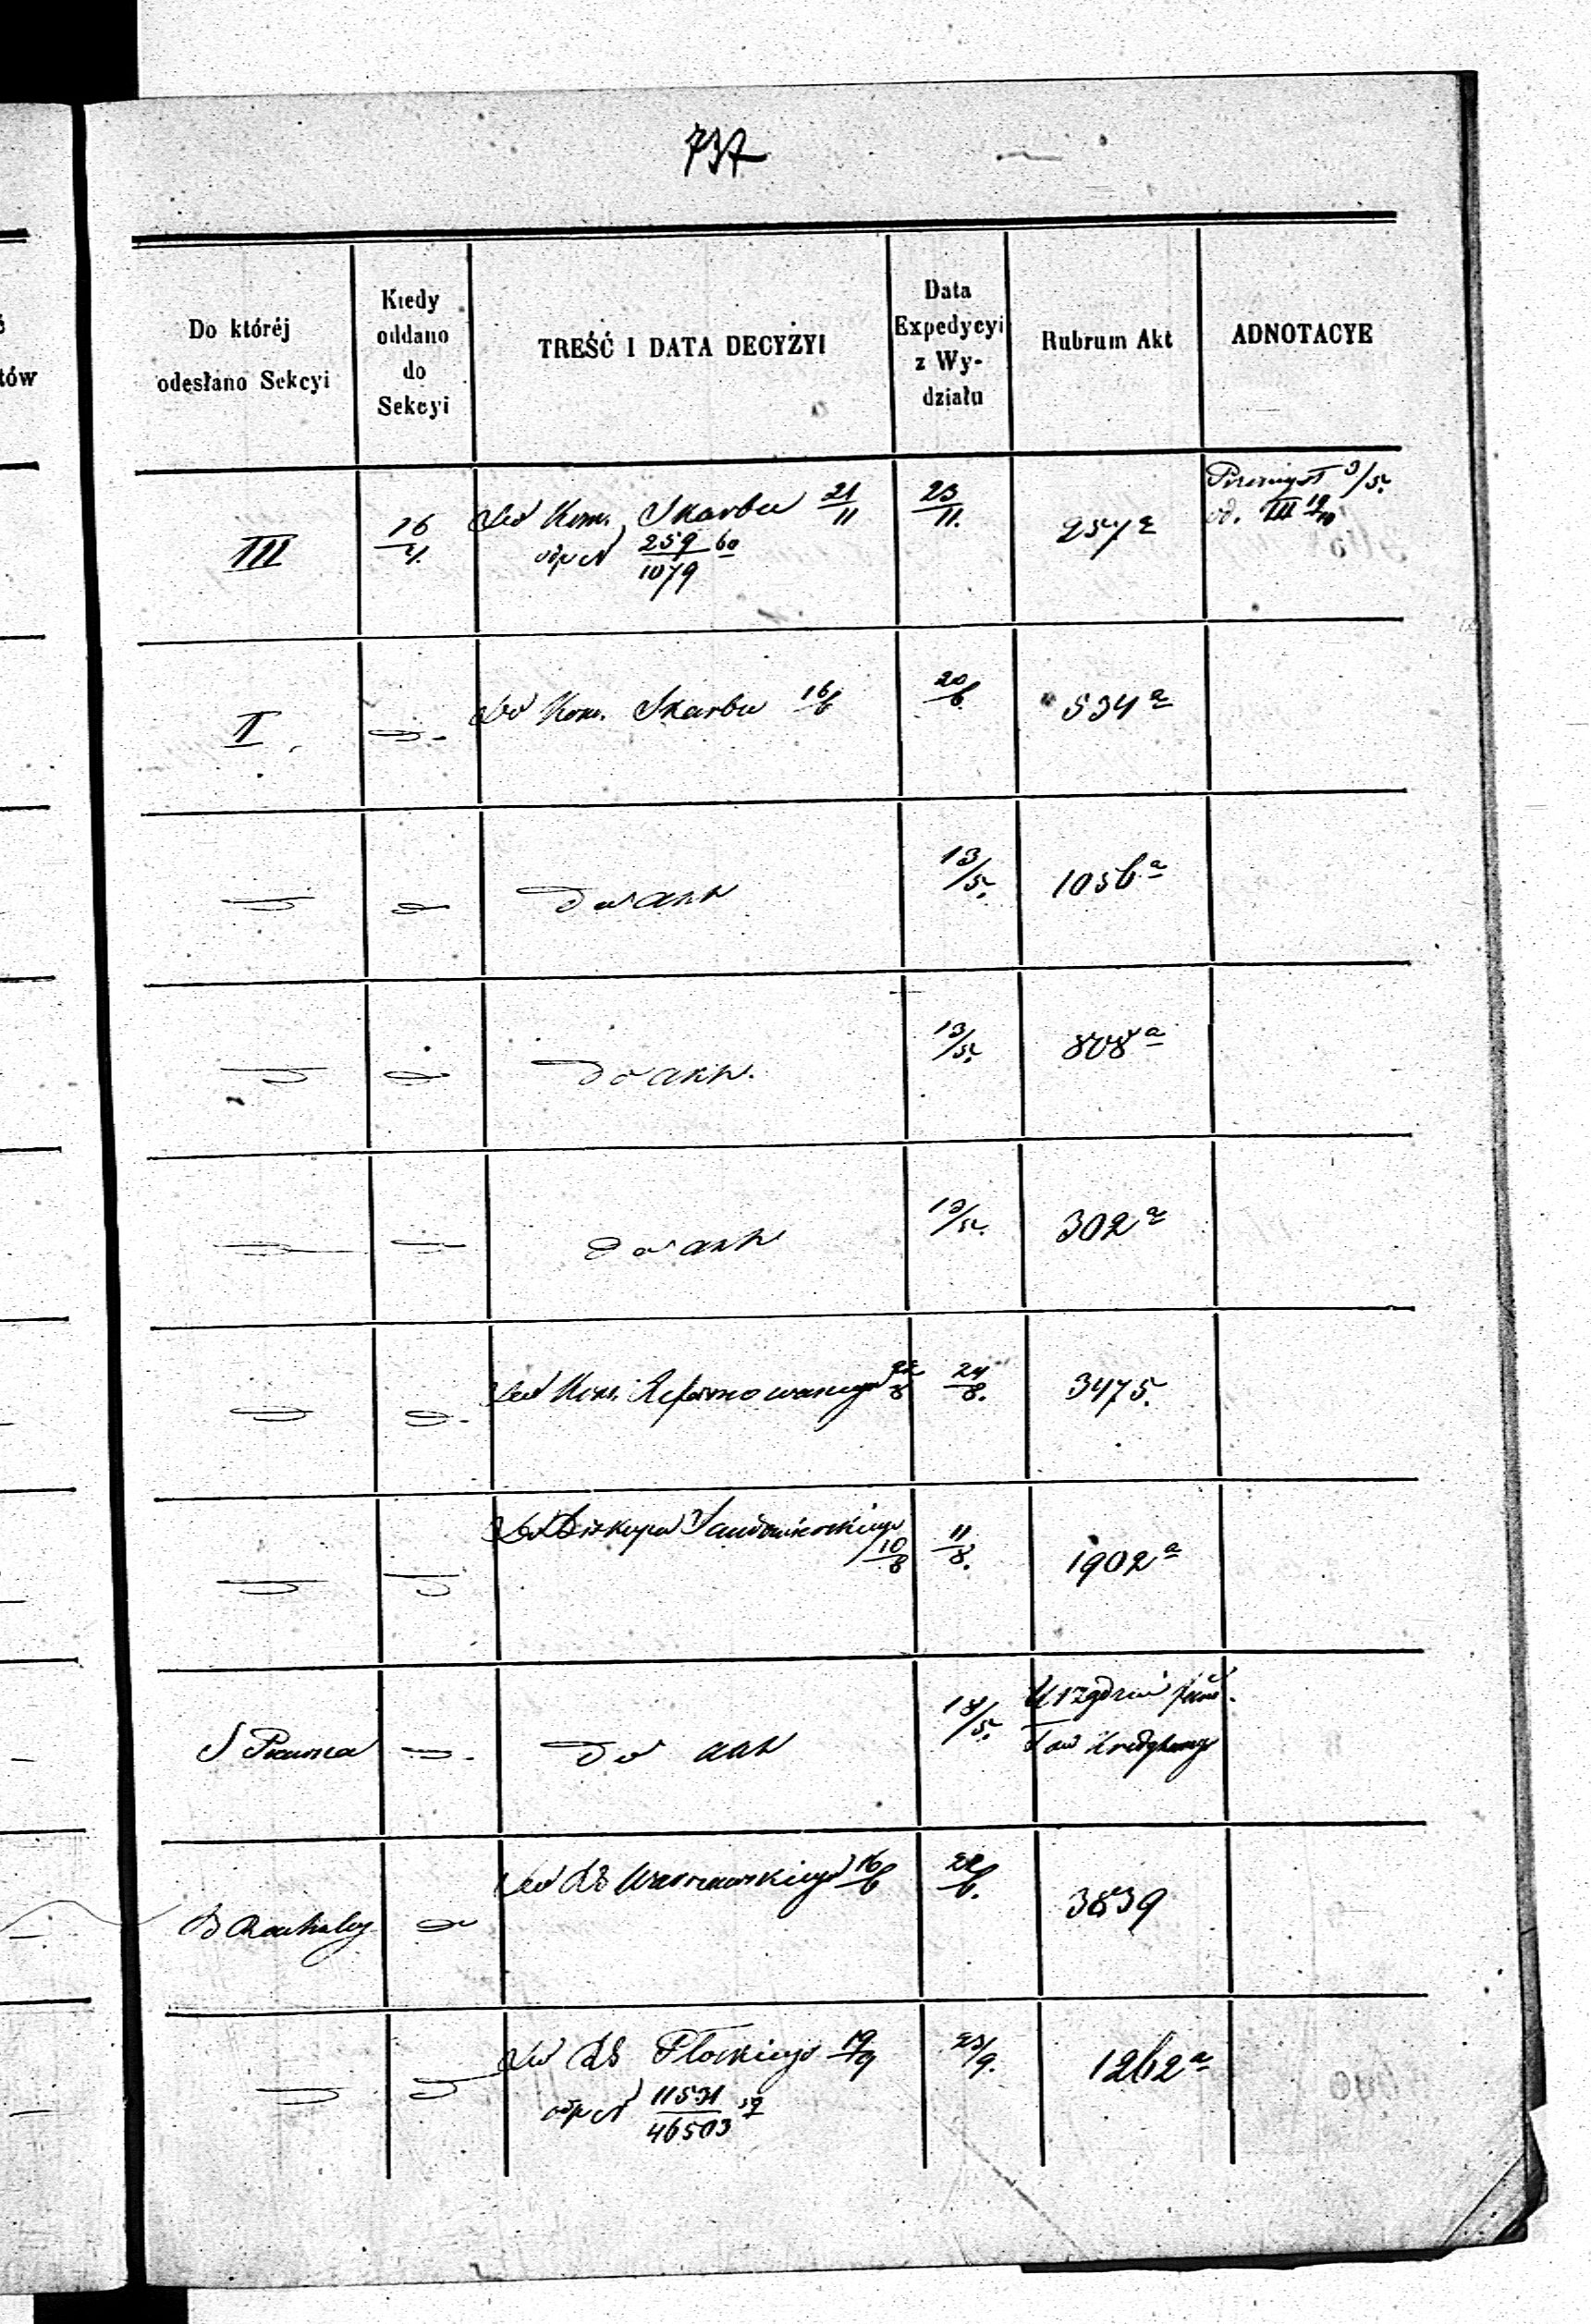 737
Do któréj
odesłano Sekcyi
Kiedy
oddano
do
Sekcyi
TREŚĆ I DATA DECYZYI
Data
Expedycyi
z Wy-
działu
Rubrum Akt
ADNOTACYE
tów
III
16/4.
Do Kom. Skarbu 21/11
odp N 259/1079 60
23/11.
257
III
II
Do Kom. Skarbu 16/6
20/6
534 a
do akt
13/5.
1056 a
do akt.
13/5.
808 a
do akt
13/5.
302 a
Do Kons. Reformowanego 22/8
24/8.
3475.
Do Biskupa Sandomirskiego
10/8
11/8.
1902 a
S Prawna
do akt
18/5.
Tow Kredytowego
Do RG Warszawskiego 16/6
22/6.
3839
Do RG Płockiego 19/9
odp N 11531/46503 59
23/9.
1262 a